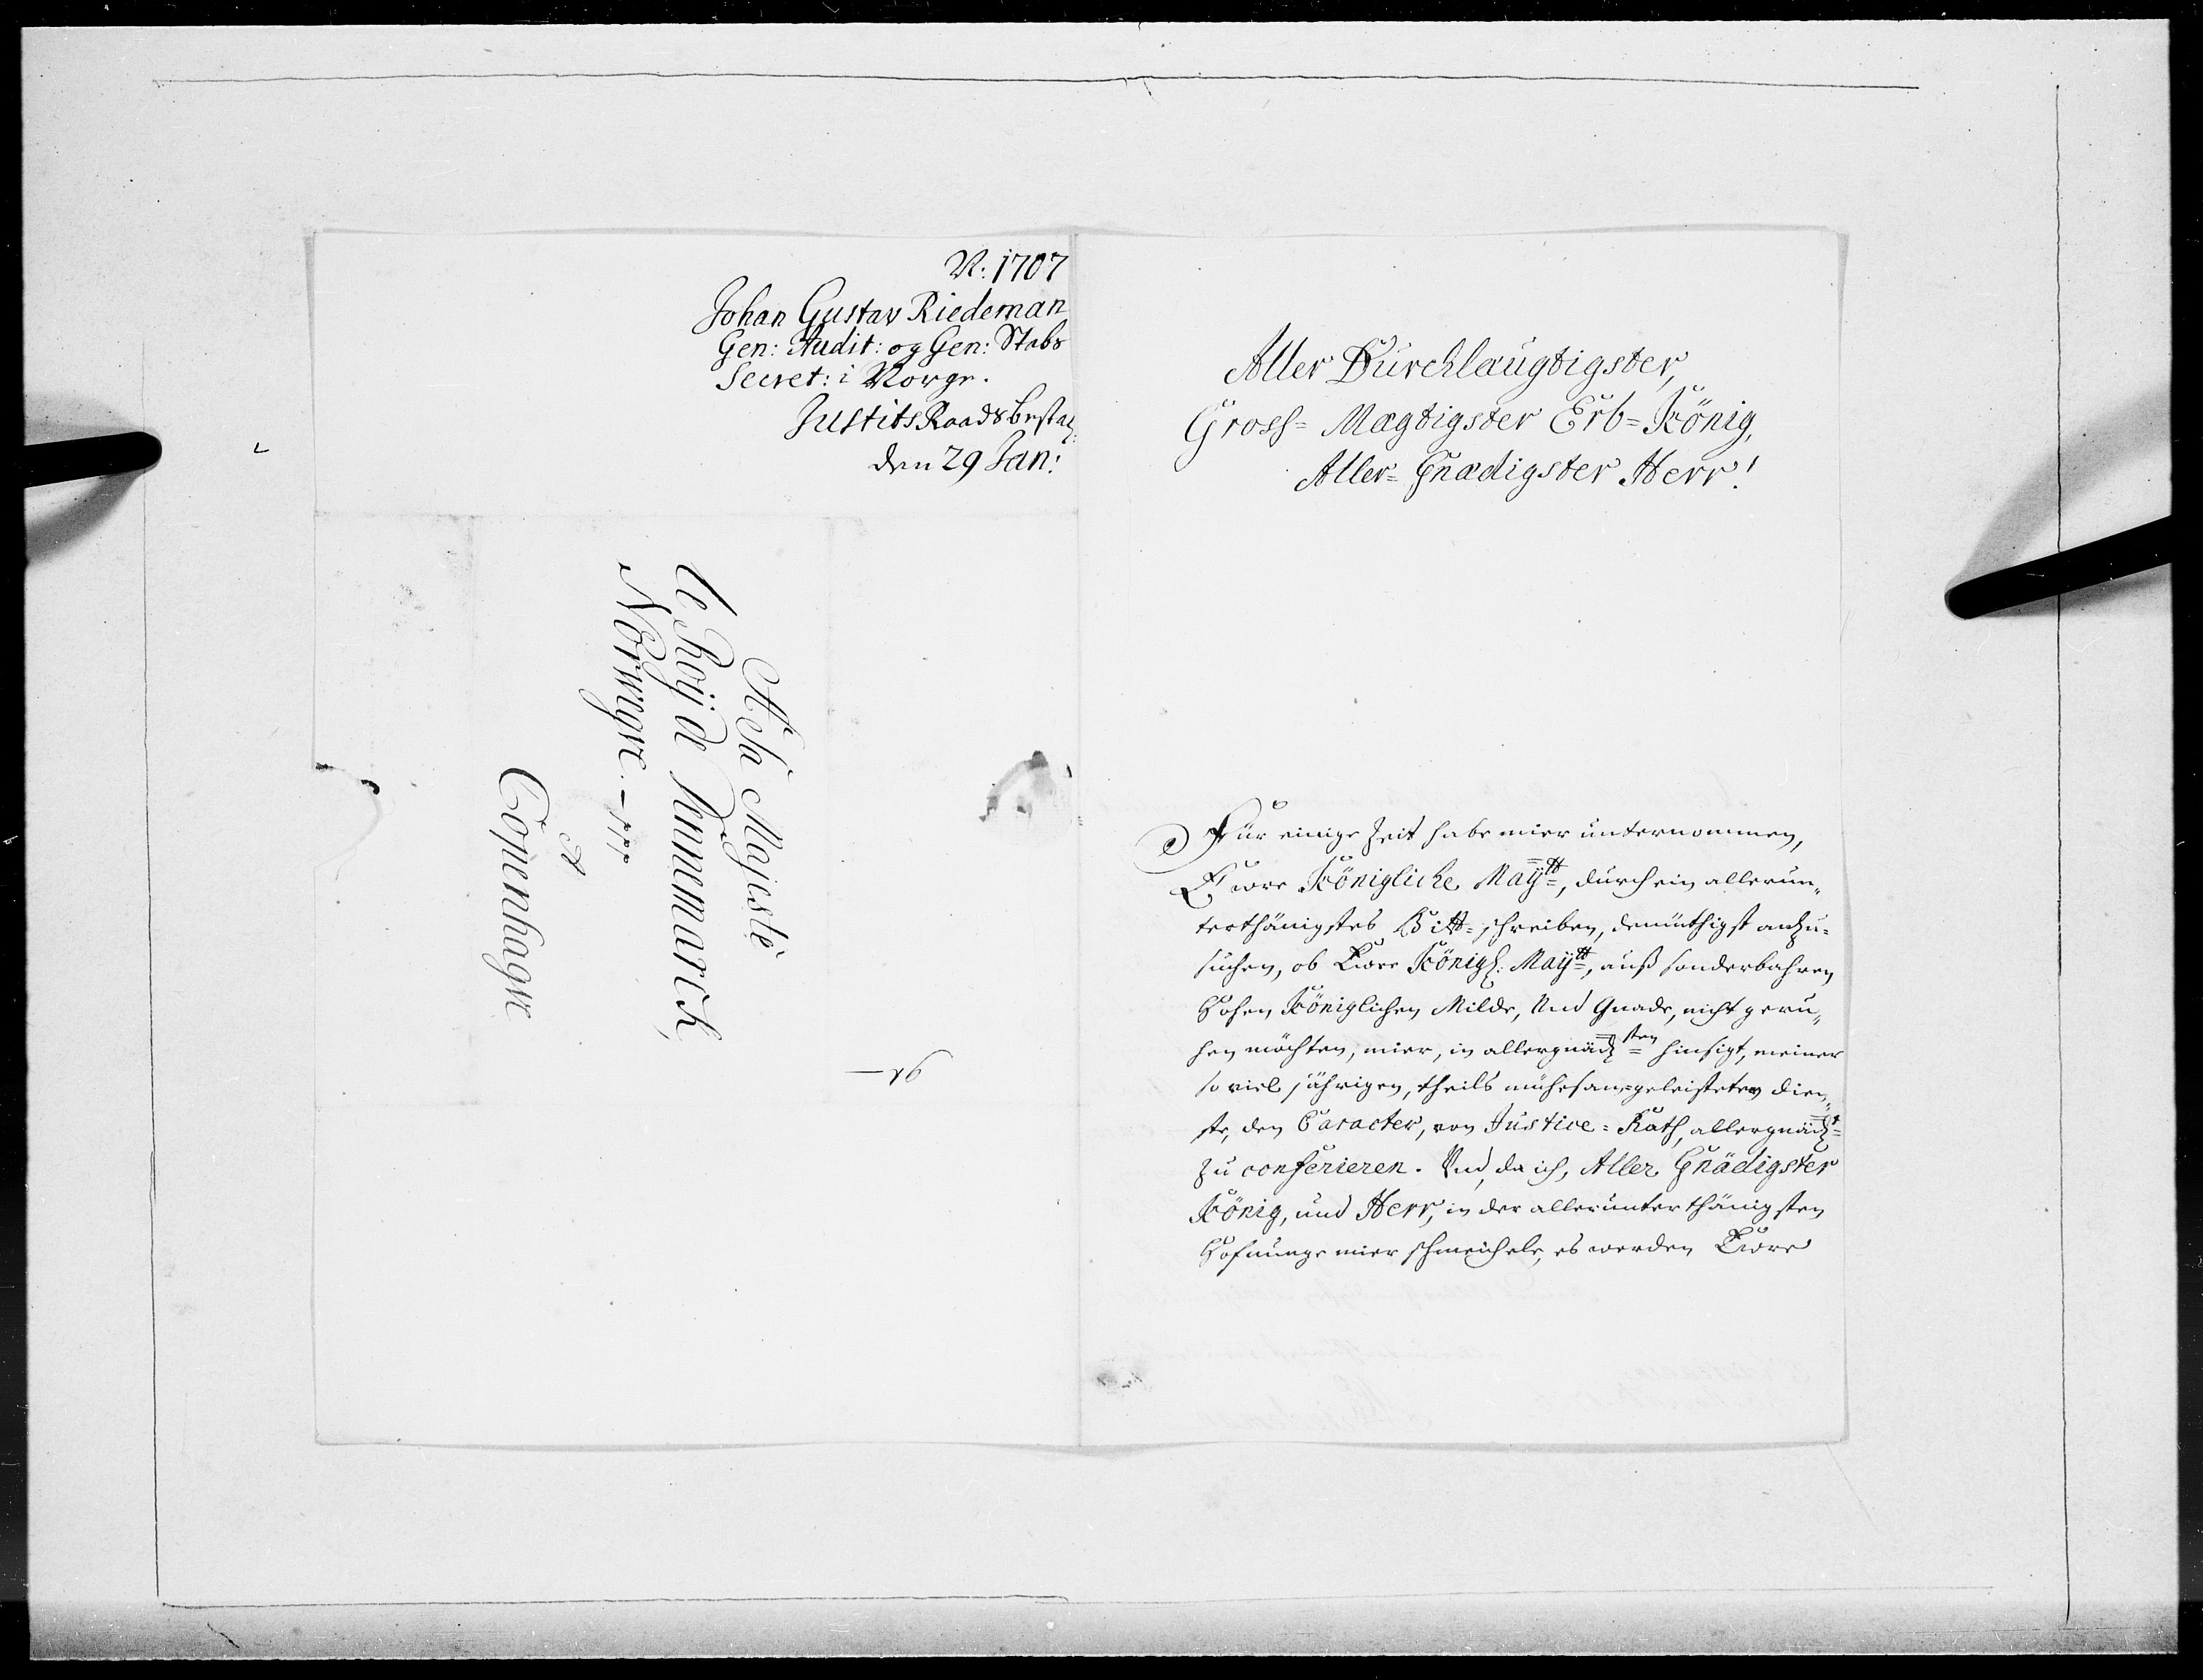 N: 1707
Johan Gustav Riedeman
Gen: Audit: og Gen: Stabs
Secret: i Norge.
Justits Raads bestal:
den 29 Jan:
A Sa Majesté
le Roÿ de Dennemarck,
Norwegve. - ppp
A
Copenhagve
—
Aller Durchlaugtigster,
Gross= Mægtigster Erb=König,
Aller=Gnædigster Herr!
Für einige Zeit habe mier unternommen,
Ewre Königliche Maÿtt, durch ein allerun„
terthänigstes Bitt=schreiben, demüthigst anzu=
suchen, ob Ewre Königl: Maÿtt, auß sonderbahren
Hohen Königlichen Milde, Und Gnade, nicht geru„
hen möchten, mier, in allergnädsten hinsigt, meiner
so viel jährigen, theils mühesam=geleisteten dien„
ste, den Caracter, von Justice=Rath, allergnädt
zu conferieren. Und, da ich, Aller Gnädigster
König, und Herr, in der allerunterthänigsten
Hofnunge mier schmeichele, es werden Ewre